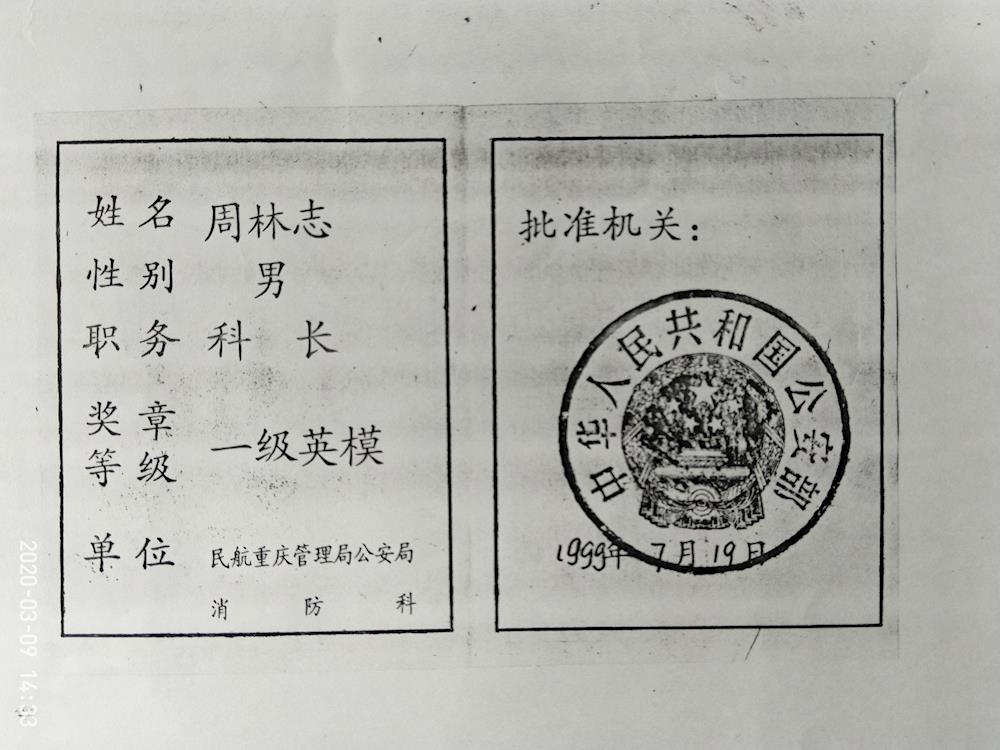 姓名 周林志
性别 男
职务 科长
奖章等级 一级英模
单位 民航重庆管理局公安局
消防科
批准机关：
中华人民共和国公安部
1999年7月19日
2020-03-09 14:33